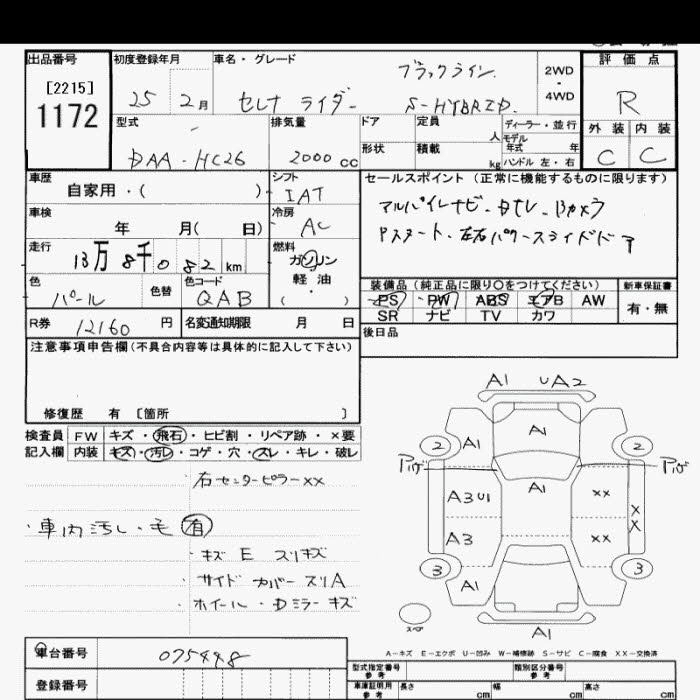 出品番号 初度登録年月 車名・グレード 評価点
[2215] ブラックライン 2WD
・
1172 25 2月 セレナ ライダー S-HYBRID 4WD R
型式 排気量 ドア 定員 人 ディーラー・並行 外装 内装
DAA-HC26 2000cc 形状 積載 kg モデル年式 年 C C
ハンドル 左・右
車歴 シフト セールスポイント (正常に機能するものに限ります)
自家用・( ) IAT
車検 冷房 アルパイレナビ・DTV・Bカメラ
年 月( 日) AC Pスタート・左右パワースライドドア
走行 燃料
13万 8千082km ガソリン
軽油
( )
色 色替 色コード 装備品 (純正品に限り〇をつけてください) 新車保証書
パール QAB PS PW ABS エアB AW 有・無
SR ナビ TV カワ
R券 12160円 名変通知期限 月 日 後日品
注意事項申告欄(不具合内容等は具体的に記入して下さい)
修復歴 有 〔箇所 〕
検査員 FW キズ・飛石・ヒビ割・リペア跡・×要
記入欄 内装 キズ・汚レ・コゲ・穴・スレ・キレ・破レ
右センターピラーXX
・車内汚レ・毛有
・キズ E スリキズ
・サイドカバースリA
・ホイール・Dミラーキズ
A1 UA2
2 A1 A1 2
A3U1 A1 XX X
A3 XX X
3 A1 3
スペア A1
A-キズ E-エクボ U-凹み W-補修跡 S-サビ C-腐食 XX-交換済
車台番号 075448
登録番号
型式指定番号 参考 類別区分番号 参考
車庫証明用 参考 長さ cm 幅 cm 高さ cm